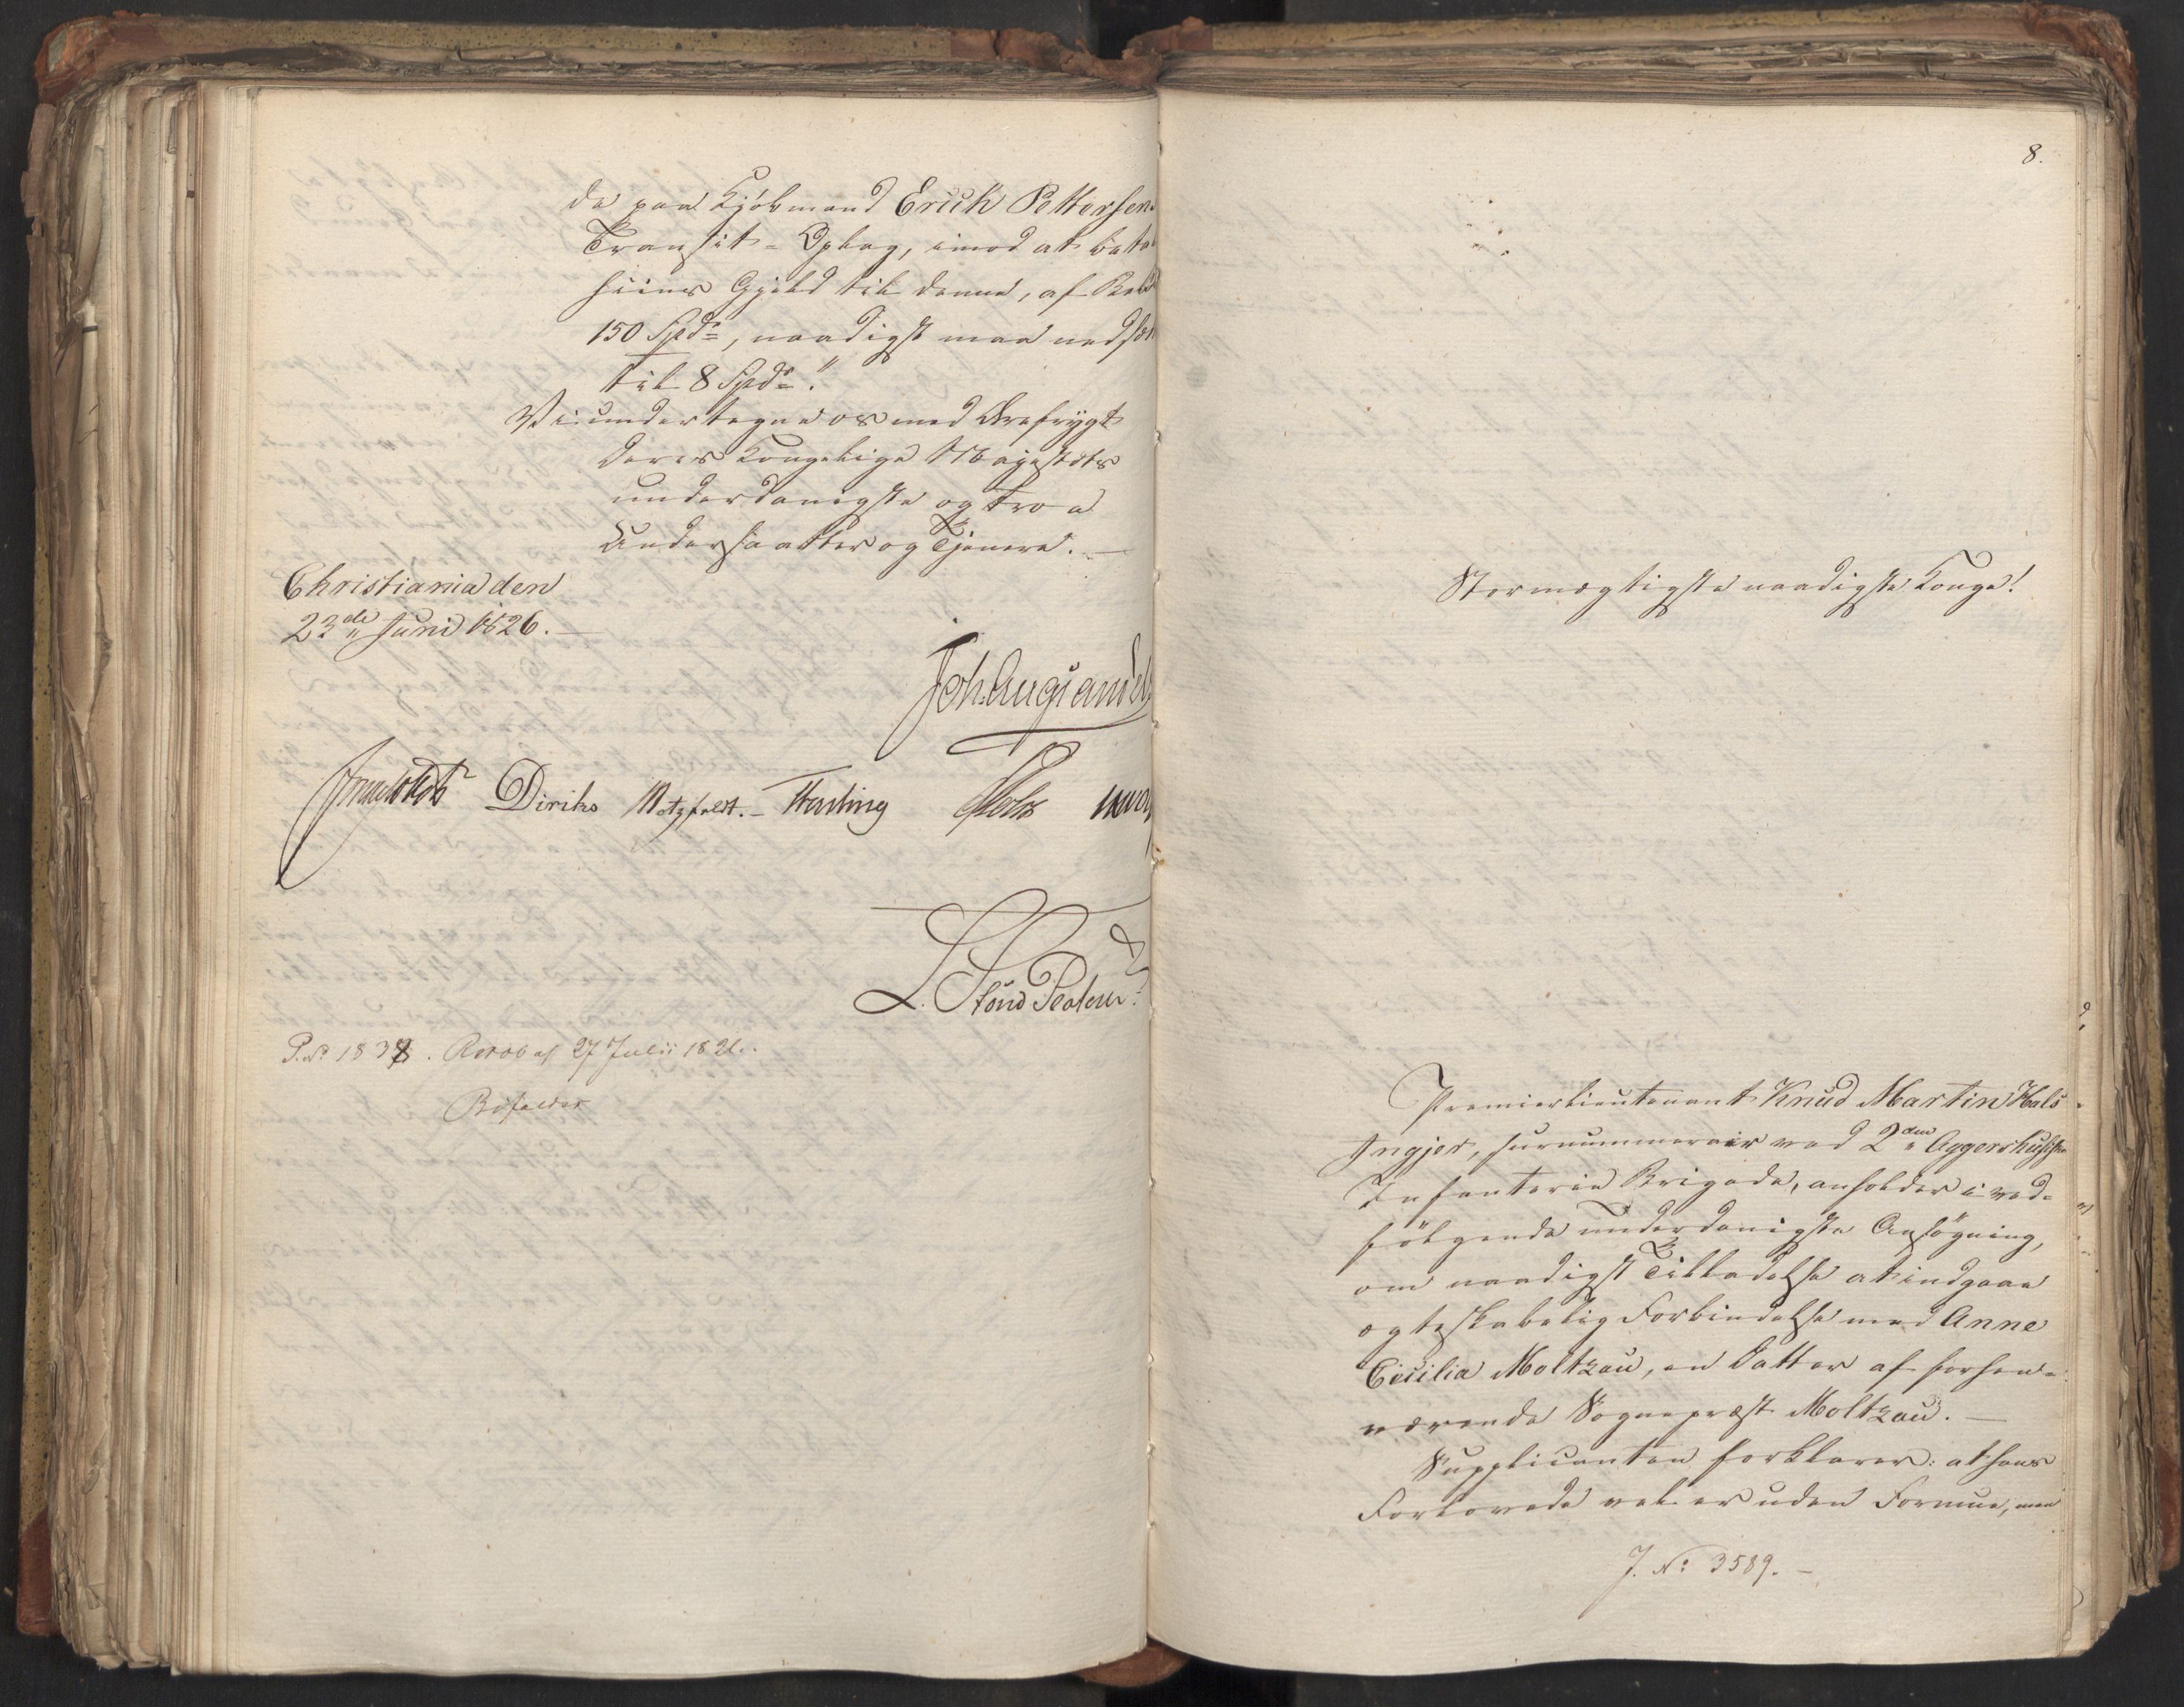 de paa Kjøbmand Erich Pettersens
Transit-Oplag, imod at beta
hiins Gjeld til denne, af Belø
150 Spdr, naadigst maa nedsæt
til 8 Spdr."
Vi undertegne os med Ærefrygt
Deres Kongelige Majestæts
underdanigste og troe
Undersaatter og Tjenere. —
Christiania den
23de Juni 1826. —
Joh. Aug: Sandel
Diriks Motzfeldt. — Fasting
L. Stoud Platou
P. No 1838. Resol af 27 Julii 1826.
Bifaldes
8.
Stormægtigste naadigste Konge!
Premierlieutenant Knud Martin Hals
Ingjer, surnummerair ved 2den Aggershusiske
Infanterie Brigade, anholder i ved-
følgende underdanigste Ansøgning,
om naadigst Tilladelse at indgaae
ægteskabelig Forbindelse med Anne
Cicilia Moltzau, en Datter af forhen-
værende Sognepræst Moltzau. —
Supplicanten forklarer: at hans
Forlovede vel er uden Formue, men
J. No 3589. —